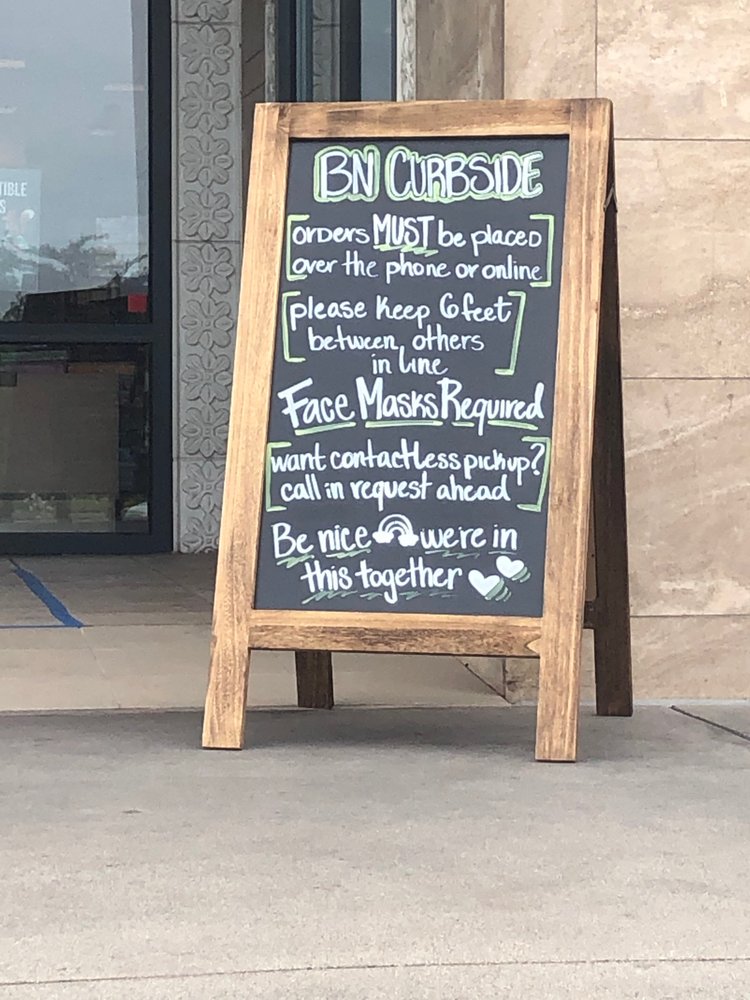 TIBLE
S
BN CURBSIDE
orders MUST be placed
over the phone or online
please keep 6 feet
between others
in line
Face Masks Required
want contactless pickup?
call in request ahead
Be nice we're in
this together